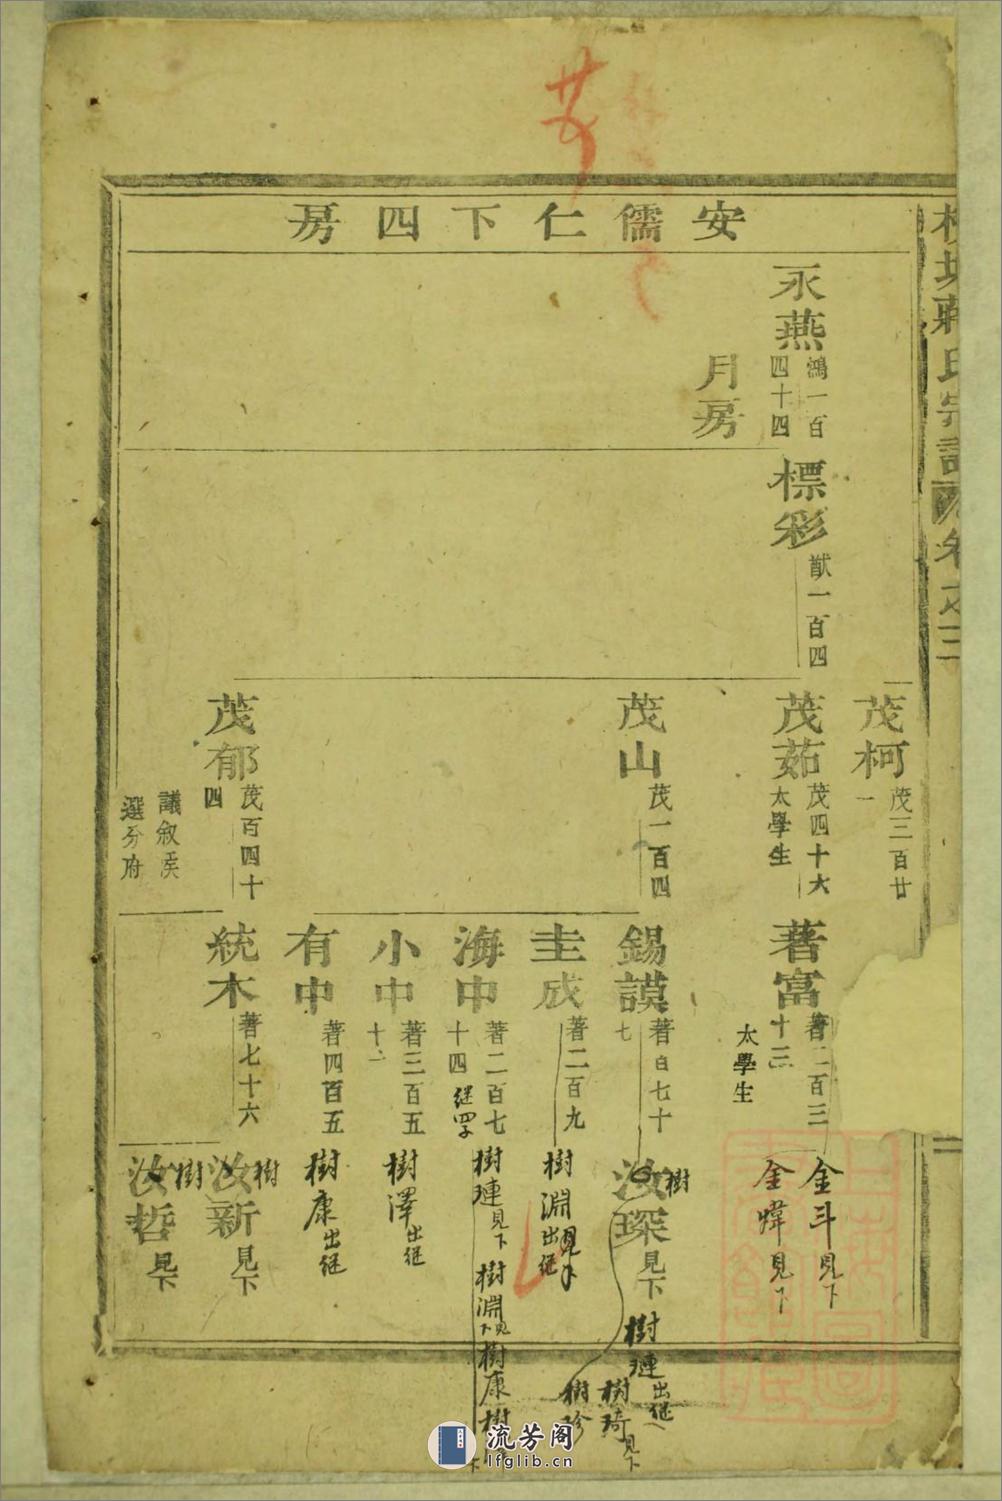 安儒仁下四房
永燕 鴻一百四十四
月房
標彩 猷一百四
茂柯 茂三百廿一
茂茹 茂四十六 太學生
茂山 茂一百四
茂郁 茂百四十四
議敘
選分府
著富 著二百三十三
太學生
錫謨 著百七十七
圭成 著二百九
海中 著二百七十四 繼四子
小中 著三百五十一
有中 著四百五
統木 著七十六
金斗見下
金煒見下
樹
汝琛 見下
樹璉出繼
樹琦見下
樹珍
樹淵出繼
樹璉見下
樹淵見下
樹康
樹
樹澤出繼
樹康出繼
樹
汝新 見下
樹
汝哲 見下
氏宗譜
卷之三
流芳阁
lfglib.cn